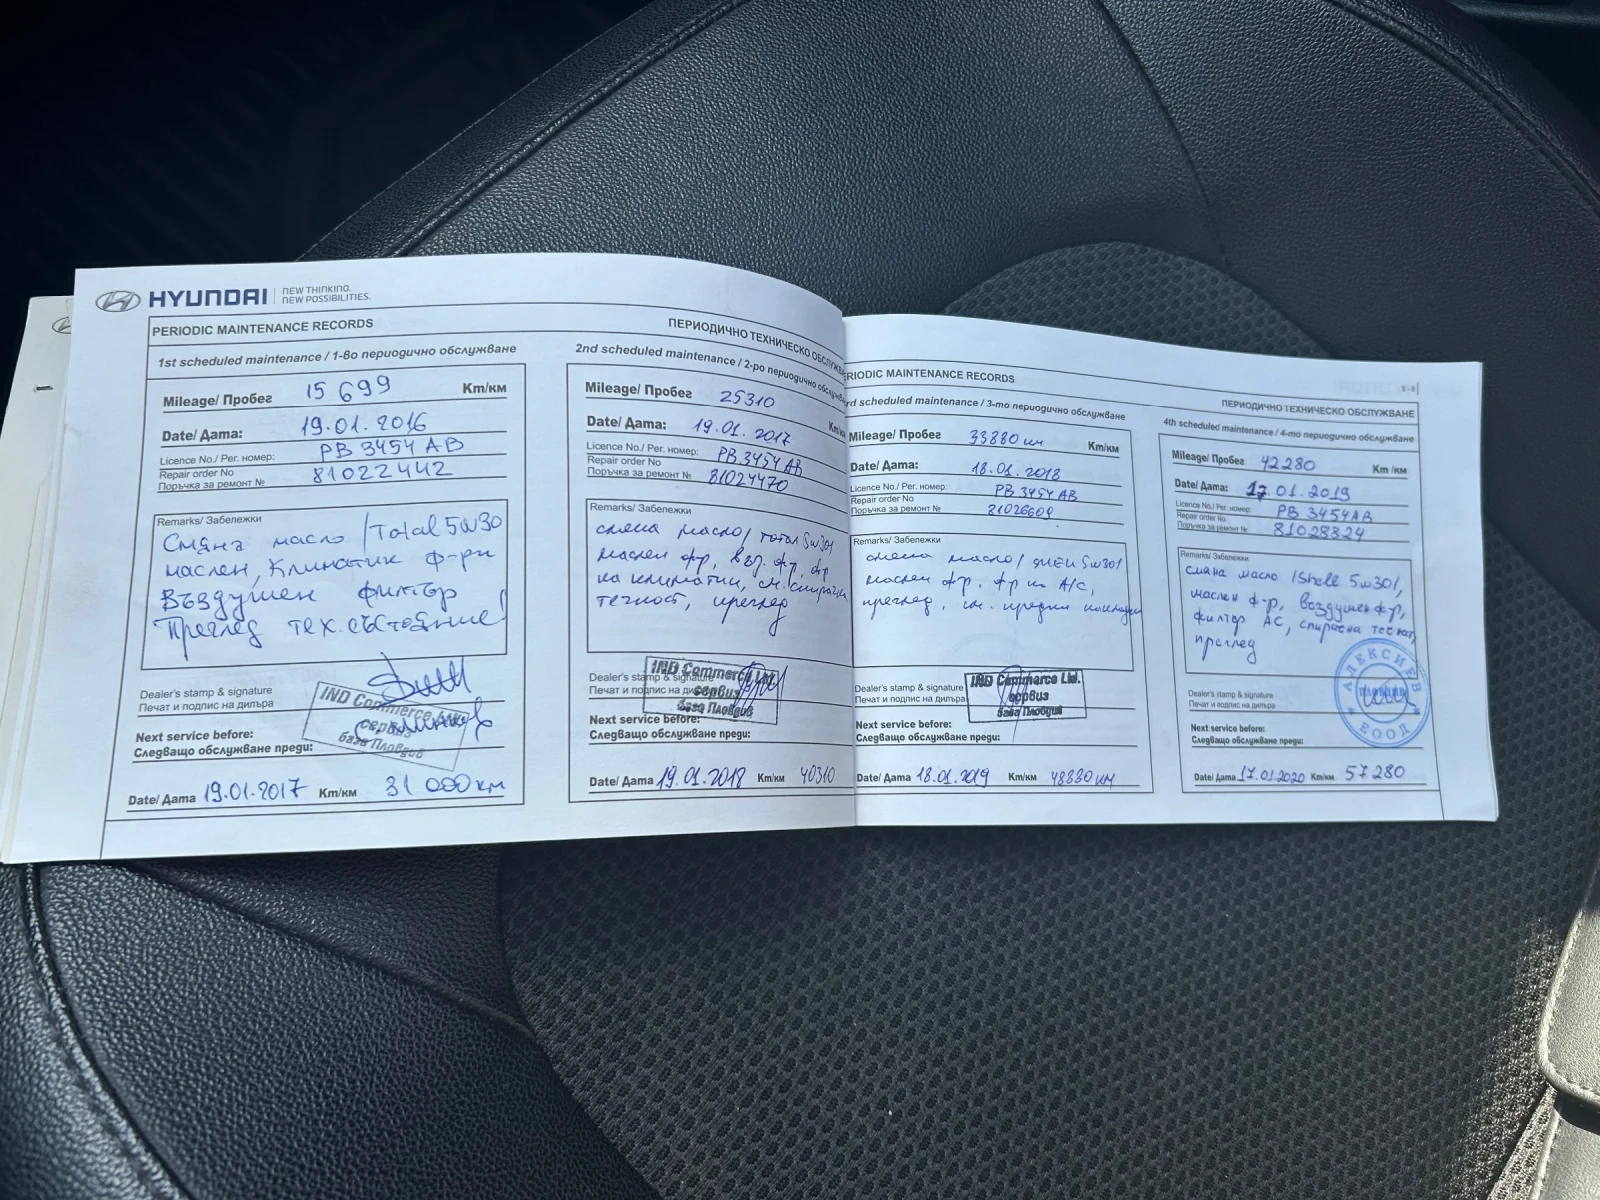 HYUNDAI
NEW THINKING.
NEW POSSIBILITIES.
PERIODIC MAINTENANCE RECORDS
ПЕРИОДИЧНО ТЕХНИЧЕСКО ОБСЛУЖВА
1st scheduled maintenance / 1-во периодично обслужване
Mileage/ Пробег 15 699 Km/км
Date/ Дата: 19.01.2016
Licence No./ Рег. номер: РВ 3454 АВ
Repair order No
Поръчка за ремонт № 81022442
Remarks/ Забележки
Смяна масло /Total 5w30
маслен, Климатик ф-ри
Въздушен филтър
Преглед тех. състояние!
Dealer's stamp & signature
Печат и подпис на дилъра
IND Commerce Ltd.
сервиз
база Пловдив
Next service before:
Следващо обслужване преди:
Date/ Дата 19.01.2017 Km/км 31 000 км
2nd scheduled maintenance / 2-ро периодично обслужване
Mileage/ Пробег 25310
Date/ Дата: 19.01.2017
Licence No./ Рег. номер: РВ 3454 АВ
Repair order No
Поръчка за ремонт № 81024470
Remarks/ Забележки
смяна масло/ тотал 5w30/
маслен фр, възд. фр, фр
на климатик, см. спирачна
течност, преглед
Dealer's stamp & signature
Печат и подпис на
IND Commerce Ltd.
сервиз
база Пловдив
Next service before:
Следващо обслужване преди:
Date/ Дата 19.01.2018 Km/км 40310
RIODIC MAINTENANCE RECORDS
ПЕРИОДИЧНО ТЕХНИЧЕСКО ОБСЛУЖВАНЕ
rd scheduled maintenance / 3-то периодично обслужване
Mileage/ Пробег 33880 км Km/км
Date/ Дата: 18.01.2018
Licence No./ Рег. номер: РВ 3454 АВ
Repair order No
Поръчка за ремонт № 21026609
Remarks/ Забележки
смяна масло/ 5w30/
маслен фр, фр на А/С,
преглед, см. предни накладки
Dealer's stamp & signature
Печат и подпис на дилъра
IND Commerce Ltd.
сервиз
база Пловдив
Next service before:
Следващо обслужване преди:
Date/ Дата 18.01.2019 Km/км 48880 км
4th scheduled maintenance / 4-то периодично обслужване
Mileage/ Пробег 42280 Km /км
Date/ Дата: 17.01.2019
Licence No./ Рег. номер: РВ 3454АВ
Repair order No
Поръчка за ремонт № 81028824
Remarks/ Забележки
смяна масло /Shell 5w30/,
маслен ф-р, въздушен ф-р,
филтър АС, спирачна течност,
преглед
Dealer's stamp & signature
Печат и подпис на дилъра
АЛЕКСИЕВ
ПЛОВДИВ
ЕООД
Next service before:
Следващо обслужване преди:
Date/ Дата 17.01.2020 Km/км 57280